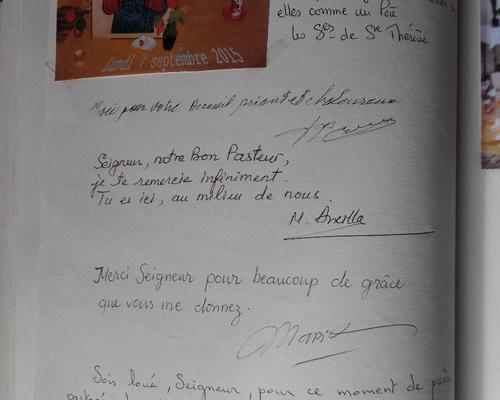 elles comme un Père
les Srs de Ste Thérèse
Lundi 7 septembre 2015
Merci pour votre Accueil priant et chaleureux
Seigneur, notre Bon Pasteur,
je te remercie infiniment.
Tu es ici, au milieu de nous.
M. Ancilla
Merci Seigneur pour beaucoup de grâce
que vous me donnez.
Maria
Sois loué, Seigneur, pour ce moment de